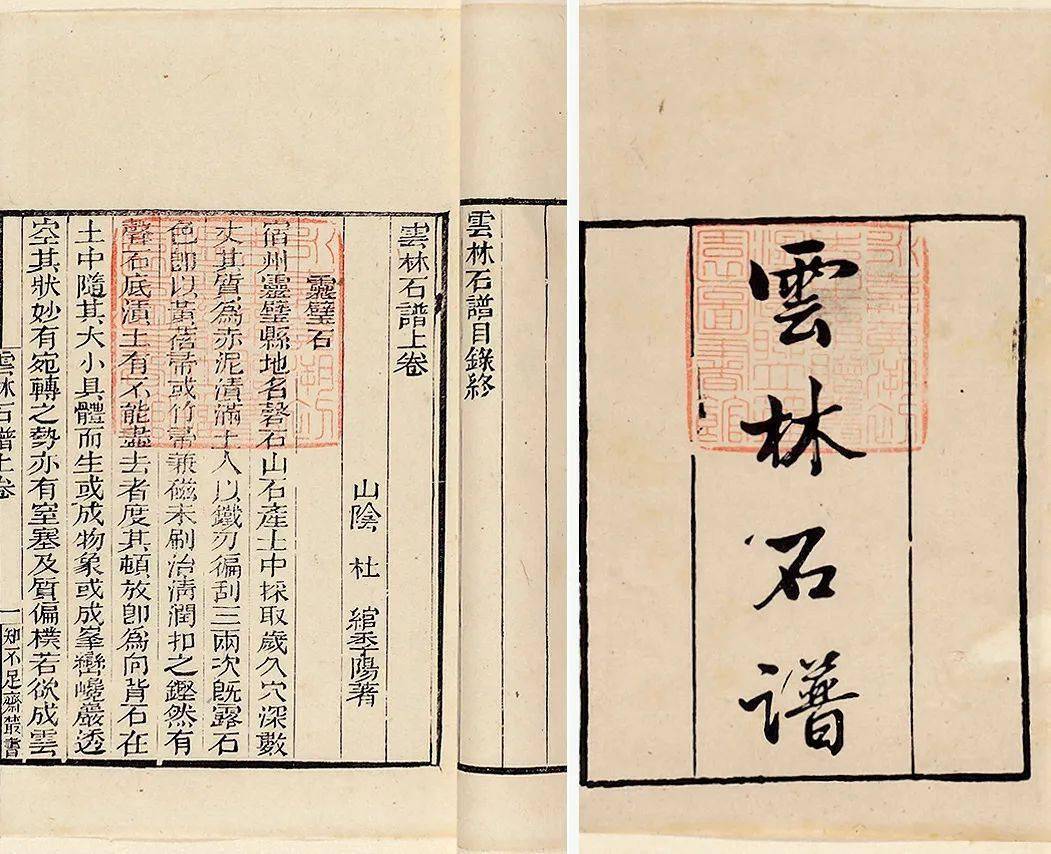 雲林石譜
雲林石譜目錄終
雲林石譜上卷
山陰 杜 綰季陽著
靈璧石
宿州靈璧縣地名磬石山石產土中採取歲久穴深數
丈其質為赤泥漬滿土人以鐵刃徧刮三兩次旣露石
色卽以黃蓓帚或竹帚兼磁末刷治清潤扣之鏗然有
聲石底漬土有不能盡去者度其頓放卽為向背石在
土中隨其大小具體而生或成物象或成峯巒巉巖透
空其狀妙有宛轉之勢亦有窒塞及質偏樸若欲成雲
雲林石譜上卷
一
知不足齋叢書